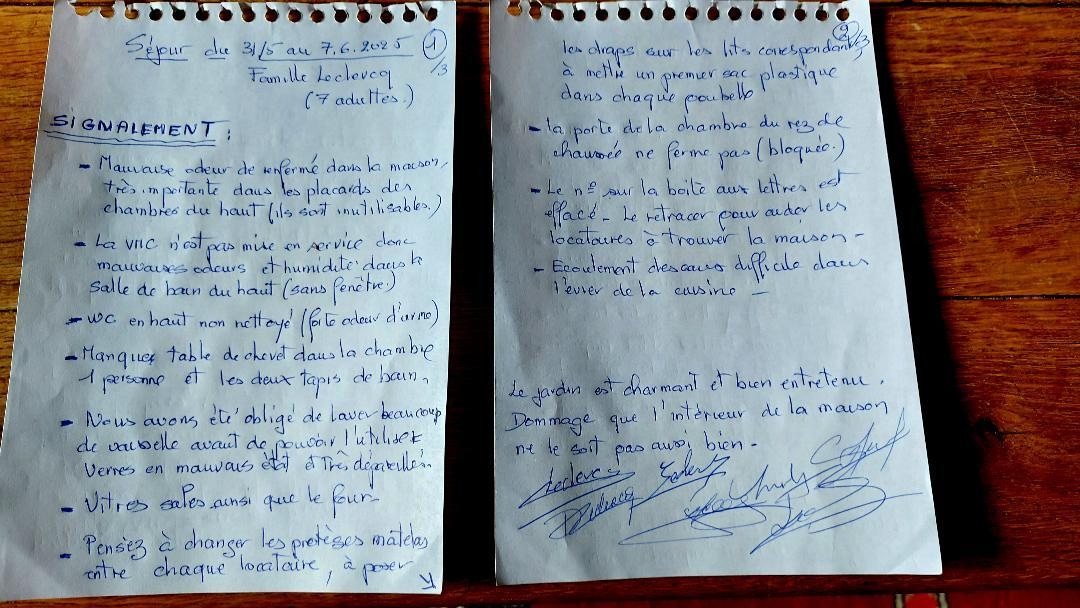 Séjour du 31/5 au 7.6.2025 1/3
Famille Leclercq
(7 adultes.)
SIGNALEMENT :
- Mauvaise odeur de renfermé dans la maison,
très importante dans les placards des
chambres du haut (ils sont inutilisables.)
- La VMC n'est pas mise en service donc
mauvaises odeurs et humidité dans la
salle de bain du haut (sans fenêtre.)
- WC en haut non nettoyé (forte odeur d'urine)
- Manques table de chevet dans la chambre
1 personne et les deux tapis de bain.
- Nous avons été obligé de laver beaucoup
de vaisselle avant de pouvoir l'utiliser
Verres en mauvais état et très dépareillés.
- Vitres sales ainsi que le four
- Pensez à changer les protèges matelas
entre chaque locataire, à poser
2/3
les draps sur les lits correspondants,
à mettre un premier sac plastique
dans chaque poubelle
- la porte de la chambre du rez de
chaussée ne ferme pas (bloquée.)
- Le n° sur la boite aux lettres est
effacé - Le retracer pour aider les
locataires à trouver la maison -
- Ecoulement des eaux difficile dans
l'évier de la cuisine -
Le jardin est charmant et bien entretenu.
Dommage que l'intérieur de la maison
ne le soit pas aussi bien -
Leclercq